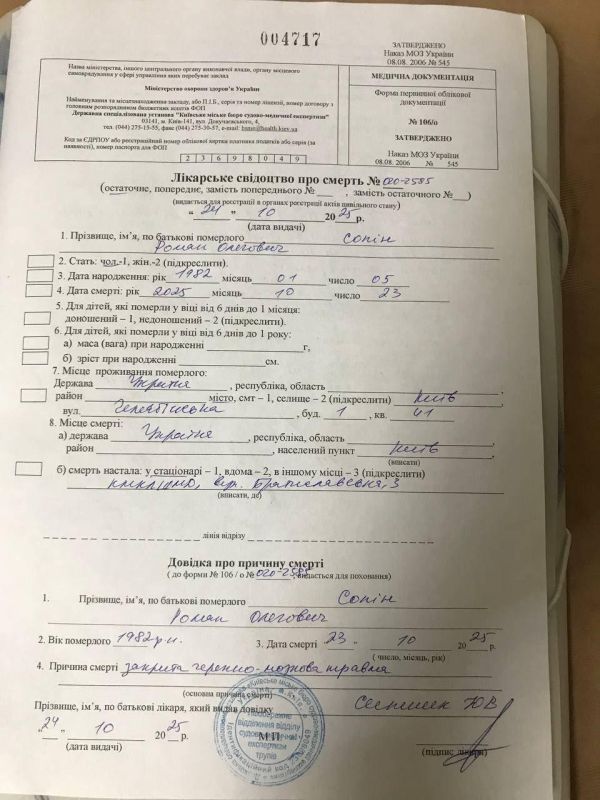 004717
ЗАТВЕРДЖЕНО
Наказ МОЗ України
08.08. 2006 № 545
Назва міністерства, іншого центрального органу виконавчої влади, органу місцевого
самоврядування у сфері управління яких перебуває заклад
Міністерство охорони здоров'я України
Найменування та місцезнаходження закладу, або П.І.Б., серія та номер ліцензії, номер договору з
головним розпорядником бюджетних коштів ФОП
Державна спеціалізована установа "Київське міське бюро судово-медичної експертизи"
03141, м. Київ-141, вул. Докучаєвська, 4,
тел. (044) 275-15-55, факс (044) 275-30-57, e-mail: bsme@health.kiev.ua
Код за ЄДРПОУ або реєстраційний номер облікової картки платника податків або серія (за
наявності), номер паспорта для ФОП
2 3 6 9 8 0 4 9
МЕДИЧНА ДОКУМЕНТАЦІЯ
Форма первинної облікової
документації
№ 106/о
ЗАТВЕРДЖЕНО
Наказ МОЗ України
08.08. 2006 № 545
Лікарське свідоцтво про смерть № 020-2585
(остаточне, попереднє, замість попереднього № ___ , замість остаточного № ___)
(видається для реєстрації в органах реєстрації актів цивільного стану)
“ 24 ” 10 2025 р.
(дата видачі)
1. Прізвище, ім'я, по батькові померлого Сопін
Роман Олегович
2. Стать: чол.-1, жін.-2 (підкреслити).
3. Дата народження: рік 1982 місяць 01 число 05
4. Дата смерті: рік 2025 місяць 10 число 23
5. Для дітей, які померли у віці від 6 днів до 1 місяця:
доношений – 1, недоношений – 2 (підкреслити).
6. Для дітей, які померли у віці від 6 днів до 1 року:
а) маса (вага) при народженні ___ г,
б) зріст при народженні ___ см.
7. Місце проживання померлого:
Держава Україна , республіка, область
район місто, смт – 1, селище – 2 (підкреслити) Київ
вул. , буд. 1 , кв. 41
8. Місце смерті:
а) держава Україна , республіка, область
район , населений пункт Київ
(вписати)
б) смерть настала: у стаціонарі – 1, вдома – 2, в іншому місці – 3 (підкреслити)
вул. Братиславська, 3
(вписати, де)
лінія відрізу
Довідка про причину смерті
( до форми № 106 / о № 020-2585, видається для поховання)
1. Прізвище, ім'я, по батькові померлого Сопін
Роман Олегович
2. Вік померлого 1982 р.н. 3. Дата смерті “ 23 ” 10 2025 р.
( число, місяць, рік)
4. Причина смерті закрита черепно-мозкова травма
(основна причина смерті)
Прізвище, ім'я, по батькові лікаря, який видав довідку
“24” 10 2025 р. М П
(дата видачі) (підпис лікаря)
відділення відділу
судово-медичної
експертизи
трупів